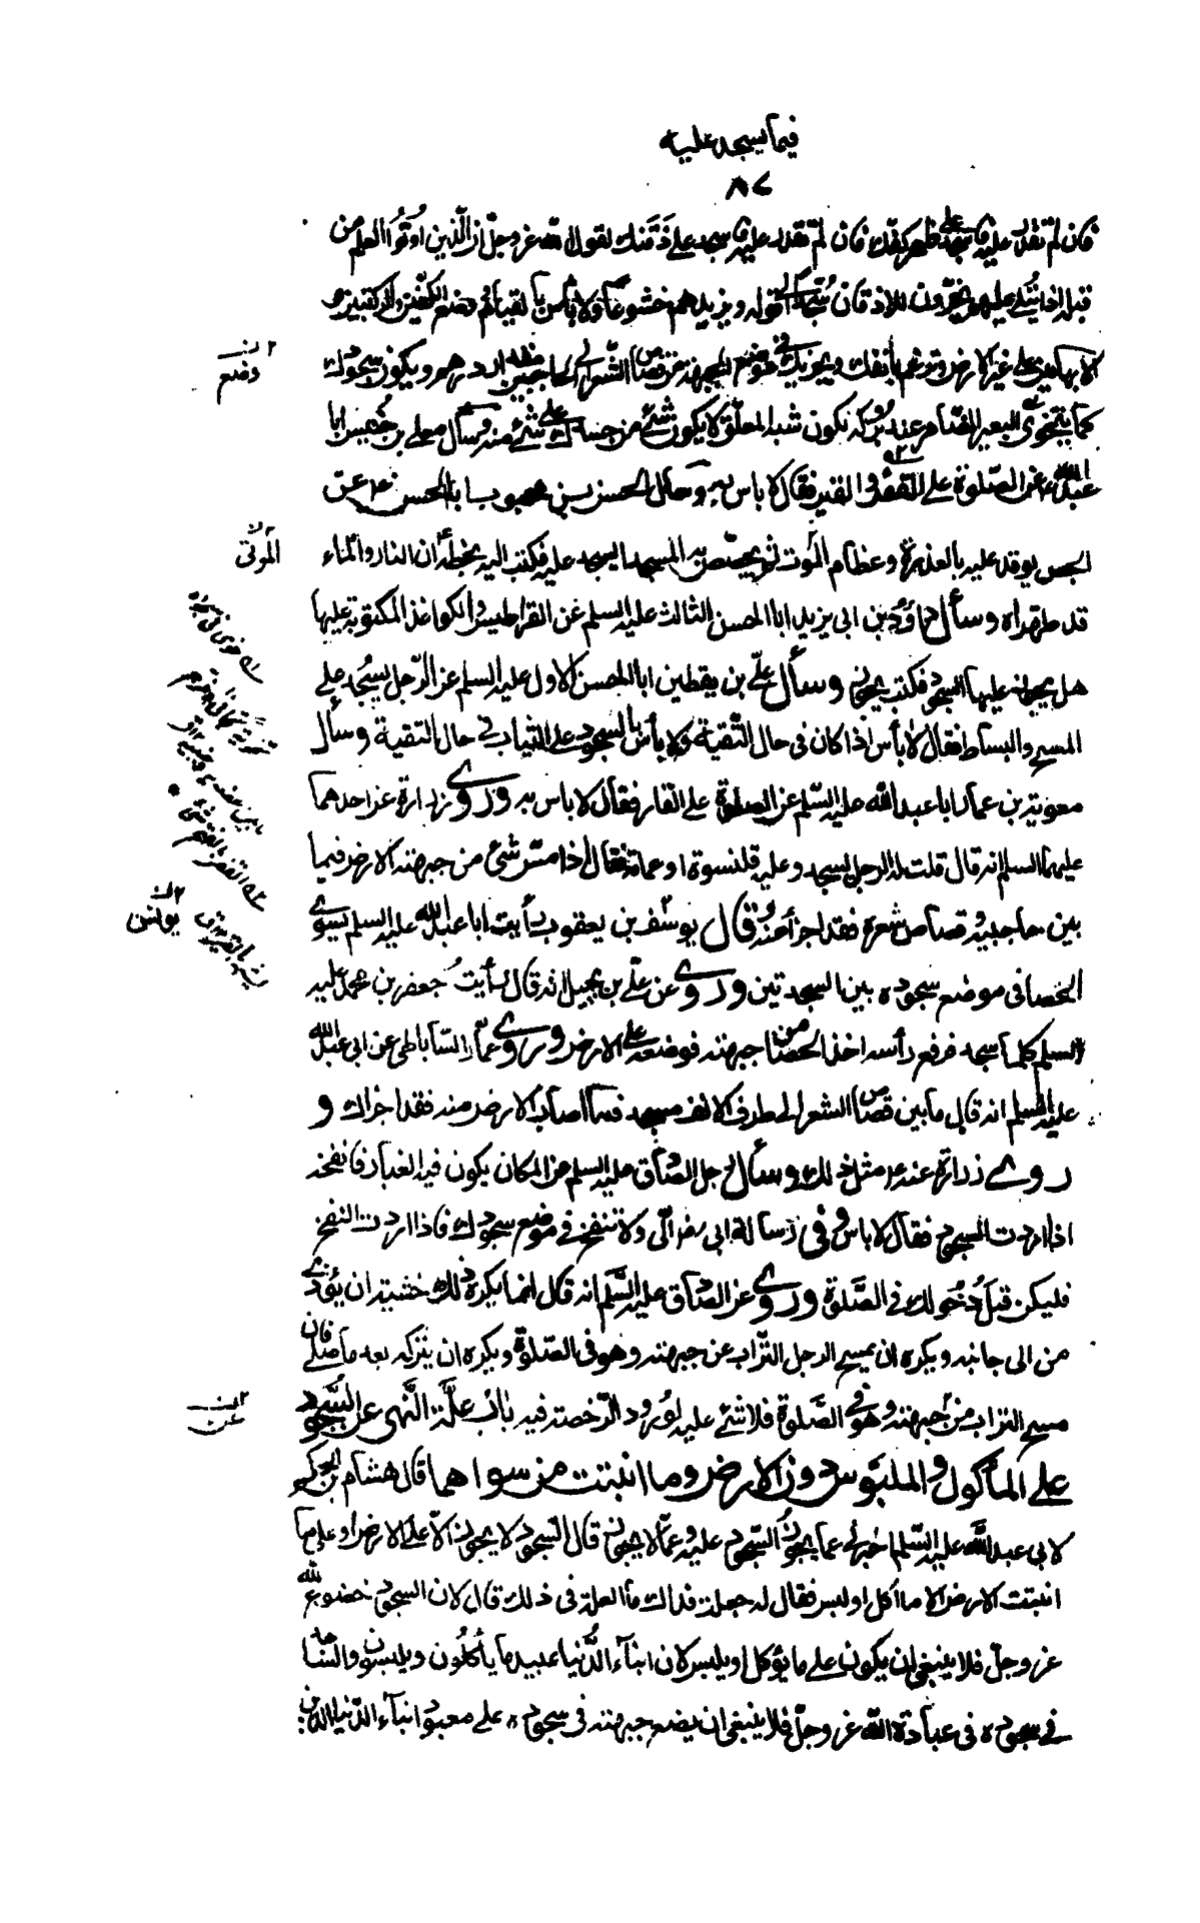 فيما يسجد عليه
٨٧
فان لم تقدر عليه فاسجد على ظهر كفّك فان لم تقدر عليه فاسجد على ذقنك لقول الله عزوجلّ انّ الّذين اُوتوا العلم من
قبله اذا يتلى عليهم يخرّون للاذقان سُجّدا الى قوله ويزيدهم خشوعاً ولا بأس بالقيام ووضع الكفّين والركبتين و
الابهامين على غير الارض وترغم بأنفك ويجزيك في موضع الجبهة من قصاص الشعر الى الحاجبين مقدار درهم ويكون سجودك
كما يتخوّى البعير الضّامر عند بروكه تكون شبه المعلّق لا يكون شئ من جسدك على شئ منه وسأل معلى بن خنيس ابا
عبدالله ع عن الصّلوة على القفر والقير فقال لا باس به وسأل الحسن بن محبوب ابا الحسن ع عن
الجص يوقد عليه بالعذرة وعظام الموتى ثم يجصّص به المسجد ايسجد عليه فكتب اليه بخطه أن النار والماء
الموتى
قد طهّراه وسأل داود بن ابى يزيد ابا الحسن الثالث عليه السلم عن القراطيس والكواغذ المكتوبة عليها
هل يجوز عليها السجود فكتب يجوز وسأل علىّ بن يقطين ابا الحسن الاول عليه السلم عن الرّجل يسجد على
المسح والبساط فقال لا بأس اذا كان فى حال التّقية ولا بأس بالسجود على الثياب في حال التقية وسأل
معوية بن عمار ابا عبد الله عليه السّلم عن الصلوة على القار فقال لا باس به وروى زرارة عن احدهما
عليهما السلم انه قال قلت له الرجل يسجد وعليه قلنسوة او عمامة فقال اذا مسّ شئ من جبهته الارض فيما
بين حاجبيه وقصاص شعره فقد اجزأ عنه وقال يوسف بن يعقوب رأيت ابا عبدالله عليه السلم يسوّى
يونس
الحصا فى موضع سجوده بين السجدتين وروى عن علىّ بن بجيل انه قال رأيتُ جعفر بن محمد عليه
السلم كلما سجد فرفع رأسه اخذ الحصا من جبهته فوضعه على الارض وروى عمّار السّاباطى عن ابى عبدالله
عليه السلم انه قال ما بين قصاص الشعر الى طرف الانف مسجد فما اصاب الارض منه فقد اجزاك و
روى زرارة عنه ع مثل ذلك وسأل رجل الصّادق عليه السلم عن المكان يكون فيه الغبار فانفخه
اذا اردت السجود فقال لا باس وفى رسالة ابى رض الىّ ولا تنفخ في موضع سجودك فاذا اردت النفخ
فليكن قبل دُخولك في الصّلوة وروى عن الصّادق عليه السّلم انه قال انما يكره ذلك خشية ان يُؤذى
من الى جانبه ويكره ان يمسح الرجل التّراب عن جبهته وهو فى الصّلوة ويكره ان يتركه بعد ما صلى فان
مسح التراب من جبهته وهو في الصّلوة فلا شئ عليه لورود الرّخصة فيه بابُ علّة النّهى عن السّجود
على المأكول والملبوس دون الارض وما انبتت من سواهما قال هشام بن الحكم
لابى عبدالله عليه السّلم اخبرنى عما يجوز السّجود عليه وعمّا لا يجوز قال السّجود لا يجوز الّا على الارض او على ما
انبتت الارض الا ما اكل او لبس فقال له جعلت فداك ما العلة فى ذلك قال لان السجود خضوع لله
عز وجلّ فلا ينبغى ان يكون على ما يؤكل او يلبس لان ابناء الدُّنيا عبيد ما يأكُلون ويلبسون والسّاجد
في سجوده فى عبادة الله عز وجلّ فلا ينبغى ان يضع جبهته فى سجوده على معبود ابناء الدّنيا الذين